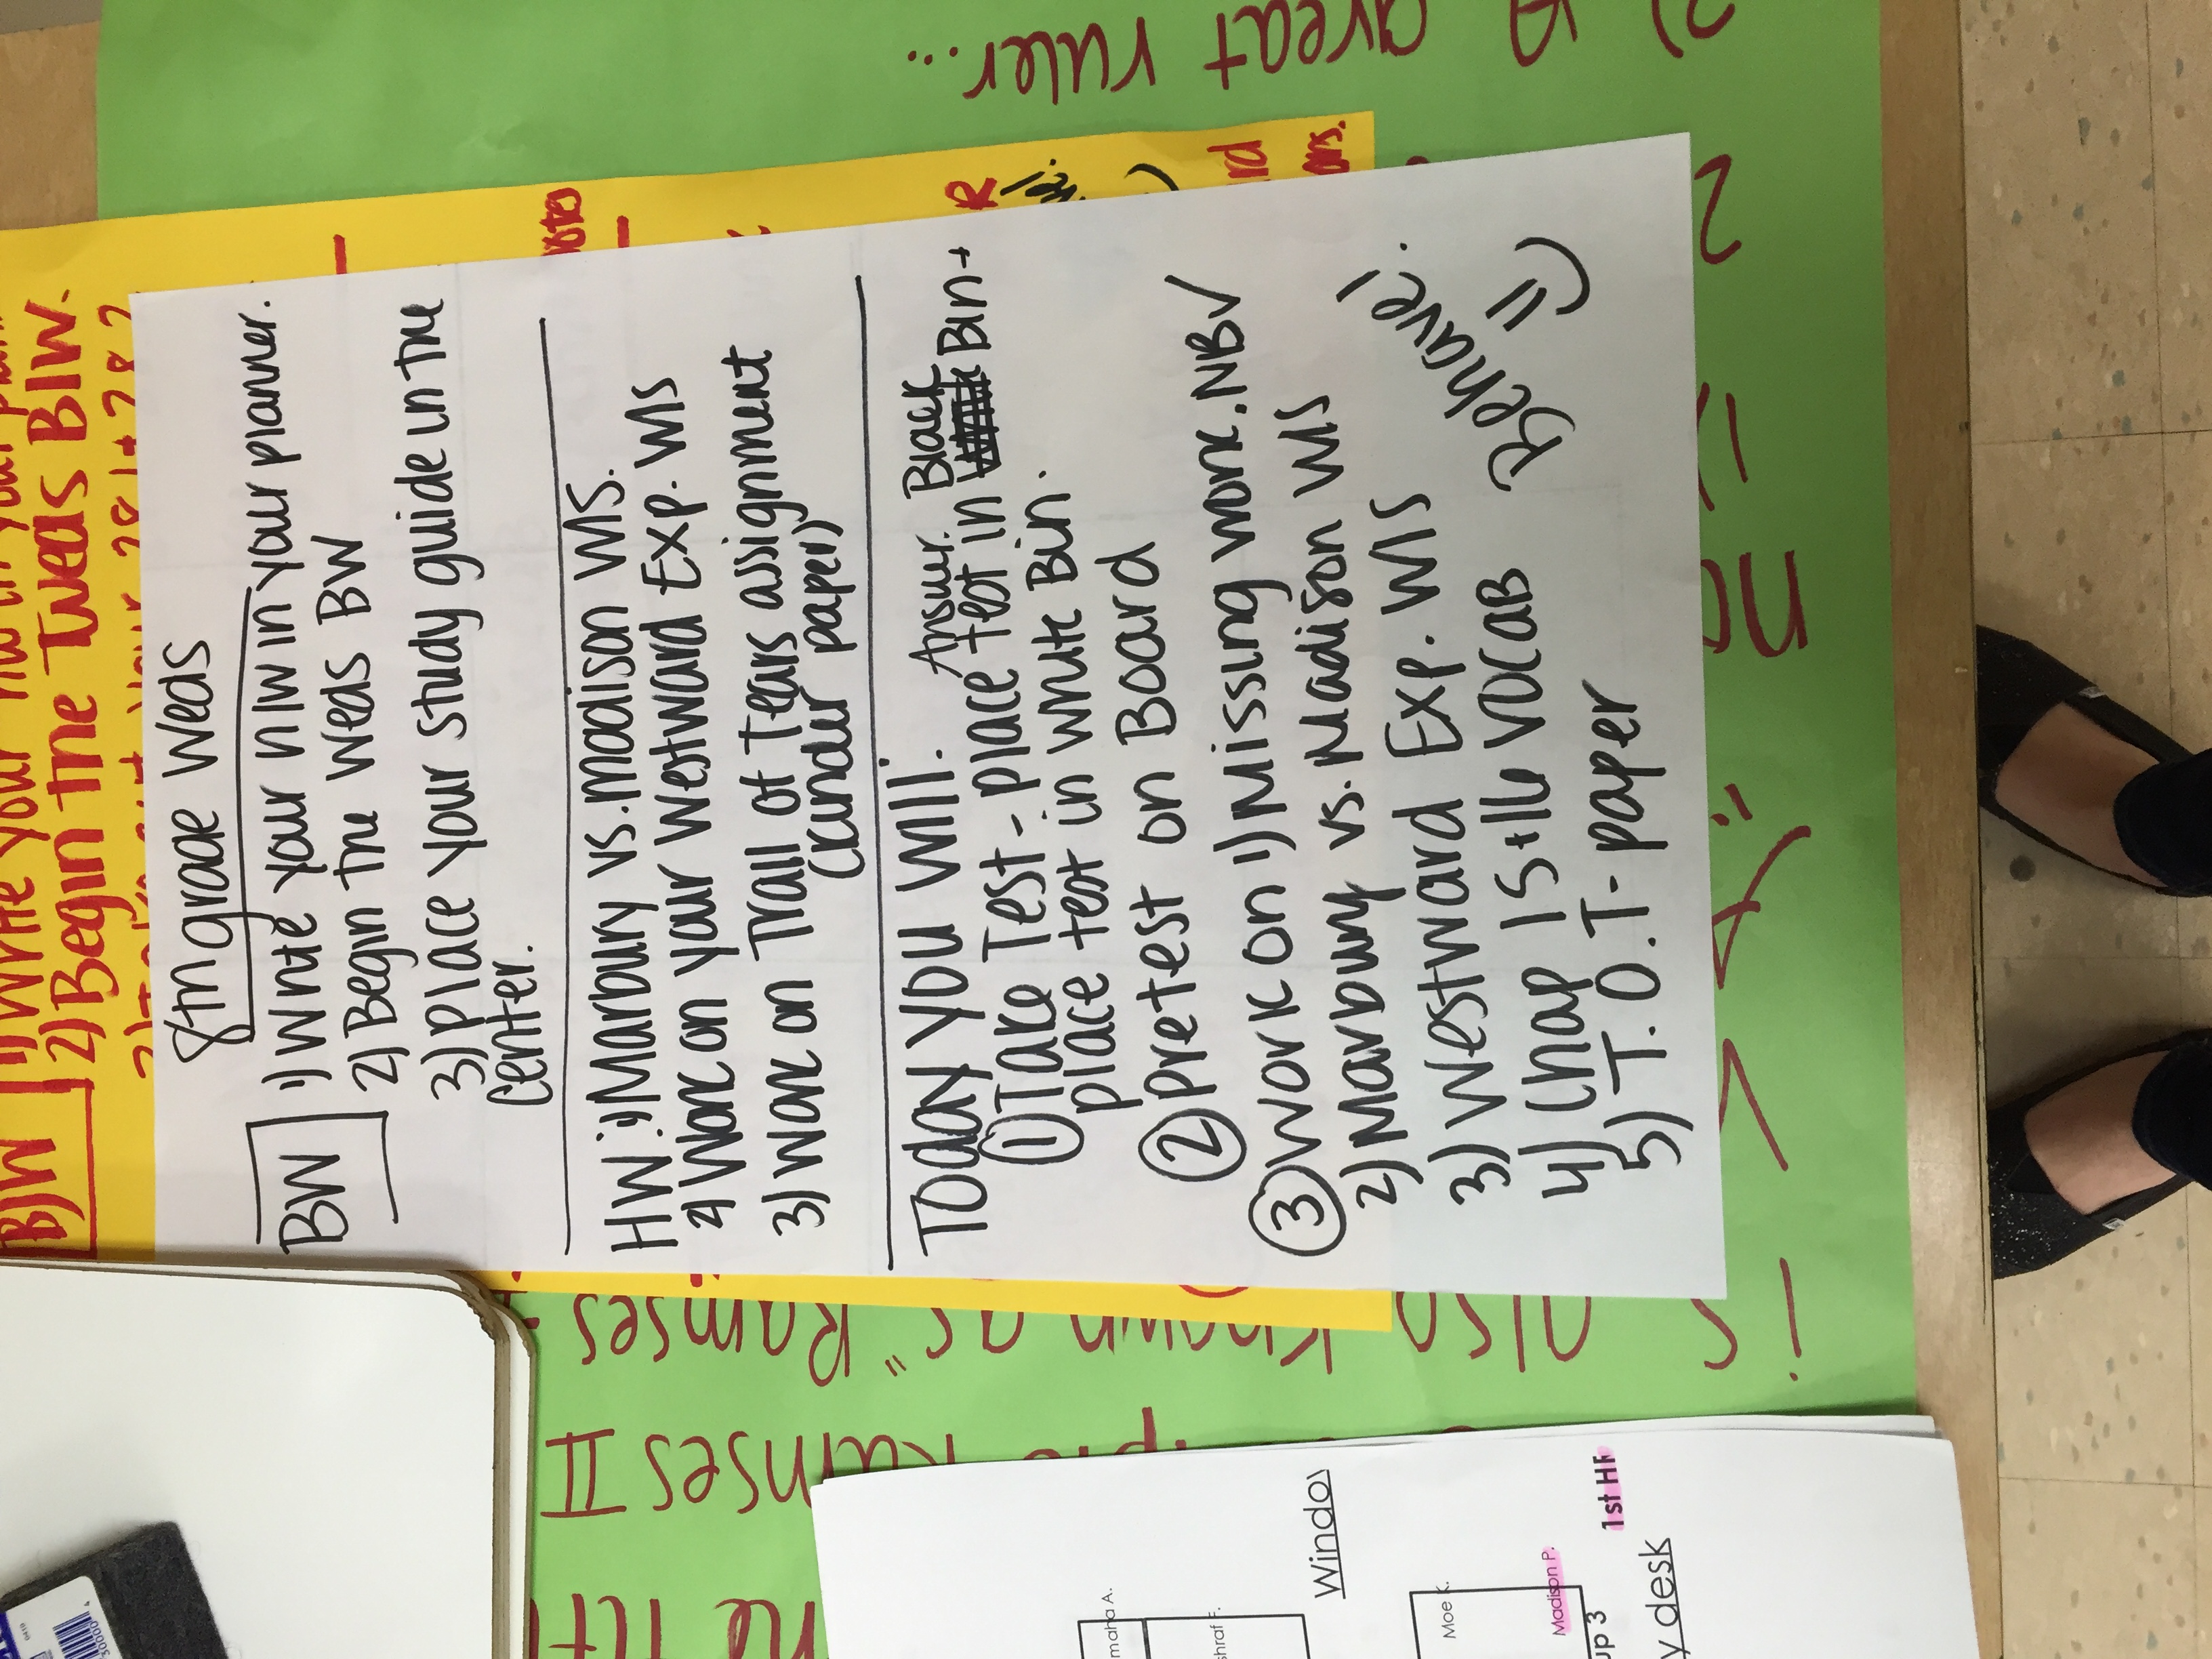 8th grade Weds
BW
1) Write your H/W in your planner.
2) Begin the Weds BW
3) place your study guide in the
center.
HW: 1) Marbury vs. Madison W/S.
2) Work on your Westward Exp. W/s
3) Work on Trail of Tears assignment
(under paper)
Today you will:
Answer. Black
① Take Test - place test in Bin +
place test in white Bin.
② pretest on Board
③ Work on 1) Missing work. NB/
2) Marbury vs. Madison W/S
3) Westward Exp. W/s
4) Chap 15+16 VOCAB
5) T.O.T- paper
Behave! :)
B)W
1) Write your in your
2) Begin the Weds B/W.
2) A great ruler...
also known as "Ramses
Ramses II
Window
maha A.
shraf F.
Moe K.
Madison P.
up 3
1st
y desk